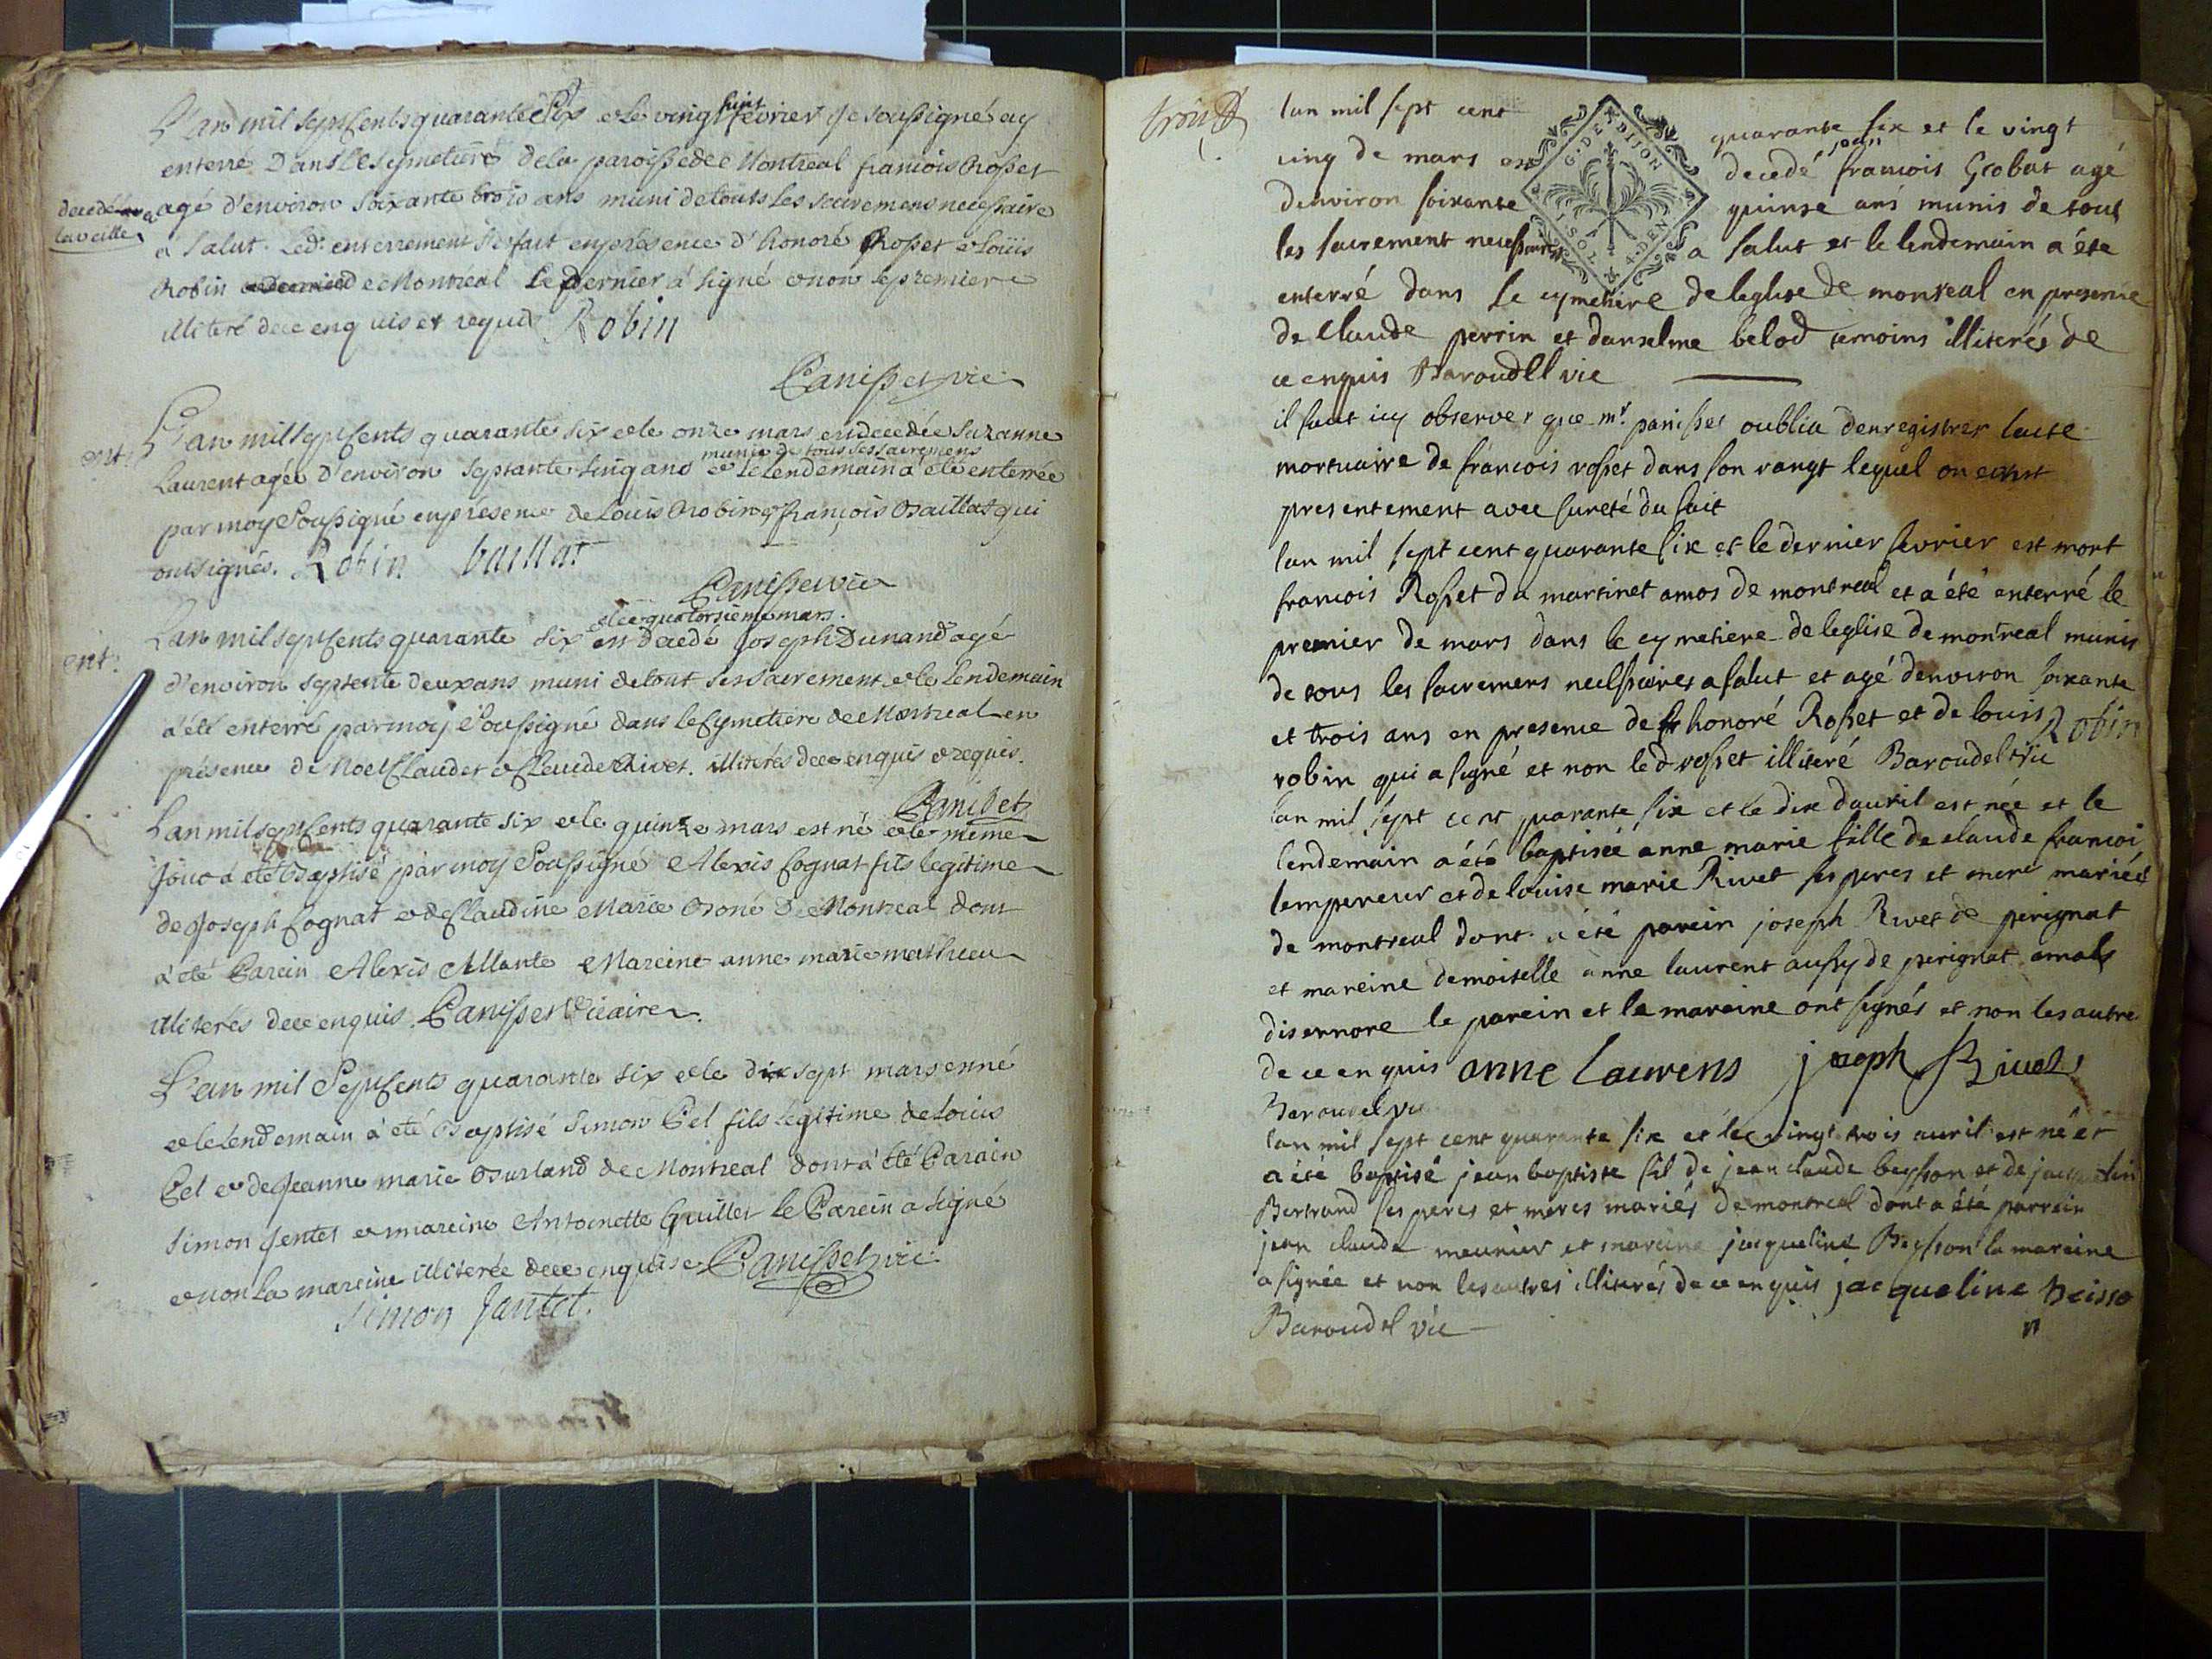 L'an mil septcents quarante six et le vingt huit fevrier je soussigné ay
enterré Dans Le Symetiere dela paroisse de Montreal francois Rosset
decedé la veille
agé d'environ soixante trois ans muni de touts les sacremens necessaire
a salut. Led. enterrement s'est fait en présence d'honoré Rosset et Loüis
Robin de Montreal le dernier a signé et non le premier
illiteré de ce enquis et requis Robin
Panisset vic
ent.
L'an mil septcents quarante six et le onze mars est decedée Suzanne
munie de tous ses sacremens
Laurent agée d'environ septante cinq ans et le Lendemain a été enterrée
par moy soussigné en présence de Louis Robin et françois Baillat qui
ont signés. Robin baillat
Panisset vic
et le quatorsieme mars.
L'an mil septcents quarante six est decedé Joseph Dunand agé
ent.
d'environ septente deux ans muni de tout ses sacrement et le Lendemain
a été enterré par moy soussigné dans le Cymetiere de Montreal en
présence de Noel Claudet et Claude Rivet. illiterés de ce enquis et requis.
Panisset
L'an mil septcents quarante six et le quinze mars est né et le même
jour a été Baptisé par moy soussigné Alexis Cognat fils legitime
de Joseph Cognat et de Claudine Marie Boné De Montreal dont
a été Parein Alexis Allante Mareine anne marie mathieu
illiterés de ce enquis. Panisset Vicaire.
L'an mil septcents quarante six et le dix sept mars est né
et le Lendemain a été Baptisé Simon Pel fils Legitime de Loüis
Pel et de Jeanne marie Burland de Montreal dont a été Parain
Simon Jentet et mareine Antoinette Guillet le Parein a signé
et non la mareine illiterée de ce enquise Panisset vic
Simon Jantet.
lan mil sept cent quarante six et le vingt
G. DE DIJON
SOL 4. DEN
cinq de mars est decedé jean francois Grobat agé
denviron soixante quinse ans munis de tous
les sacrement necessaires a salut et le lendemain a été
enterré dans le cymetiere de leglise de monreal en presence
de Claude perrin et danselme belod temoins illiterés de
ce enquis Baroudel vic
il faut icy observer que mr. panisset oublia denregistrer lacte
mortuaire de francois rosset dans son rangt lequel on ecrit
presentement avec sureté du fait
lan mil sept cent quarante six et le dernier fevrier est mort
francois Rosset du martinet amos de montreal et a été enterré le
premier de mars dans le cymetiere de leglise de montreal munis
de tous les sacremens necessaires a salut et agé denviron soixante
et trois ans en presence de honoré Rosset et de louis Robin
robin qui a signé et non led rosset illiteré Baroudel vic
lan mil sept cent quarante six et le dix dauril est née et le
lendemain a été baptisée anne marie fille de claude francoi
lempereur et de louise marie Rivet ses peres et mere mariés
de montreal dont a été parein joseph Rivet de perignat
et mareine demoiselle anne laurent aussy de perignat
disernore le parein et la mareine ont signés et non les autre
de ce enquis anne Laurens joseph Rivet
Baroudel vic
lan mil sept cent quarante six et le vingt trois auril est né et
a été baptisé jean baptiste fil de jean claude beysson et de
Bertrand ses peres et meres mariés de montreal dont a été parrein
jean claude meunier et mareine jacqueline Beysson la mareine
a signée et non les autres illiterés de ce enquis jacqueline beisso
n
Baroudel vic